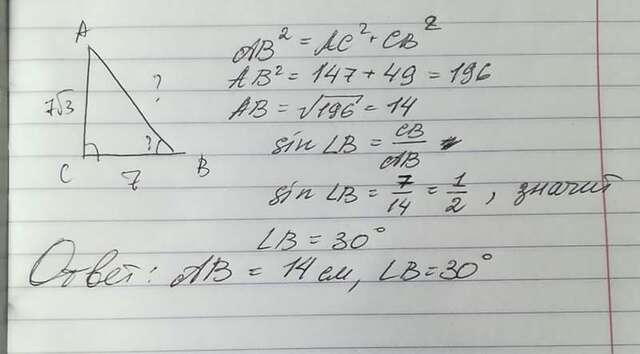 A
7√3
?
?
C
7
B
AB² = AC² + CB²
AB² = 147 + 49 = 196
AB = √196 = 14
sin ∠B = CB/AB
sin ∠B = 7/14 = 1/2, значит
∠B = 30°
Ответ: AB = 14 см, ∠B = 30°